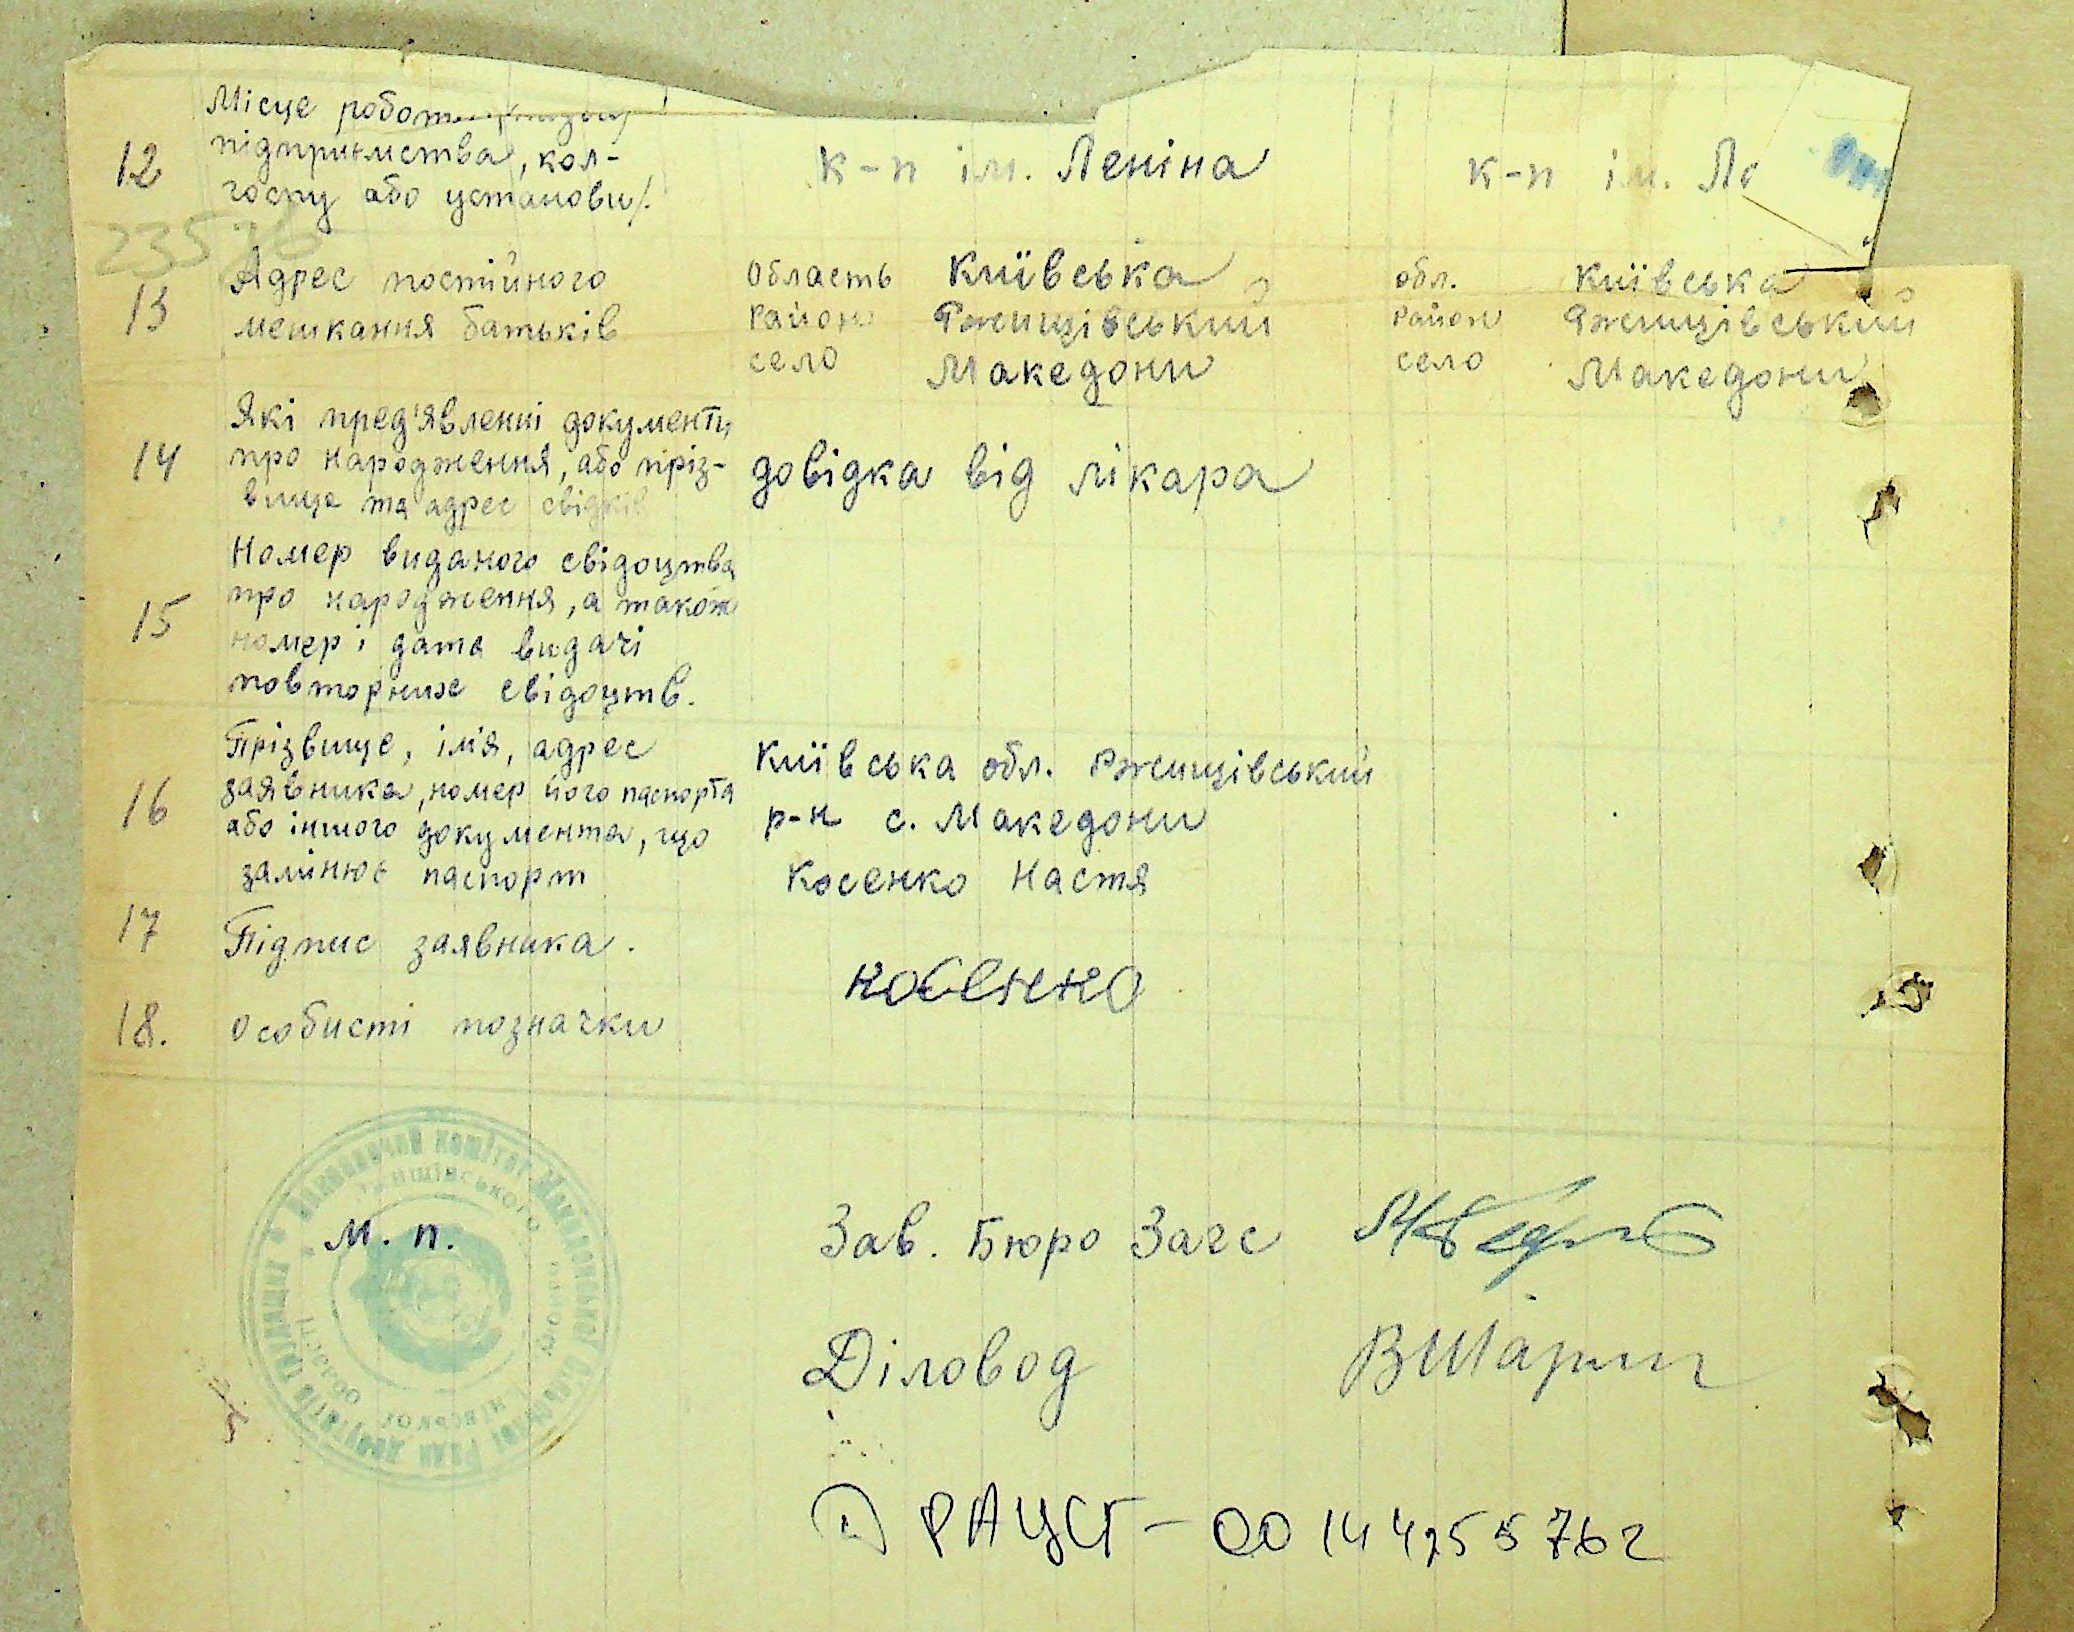 Місце робот
12 підприємства, кол-
госпу або установи/. к-п ім. Леніна к-п ім. Ле
235
13 Адрес постійного
мешкання батьків
Область Київська обл. Київська
Район Ржищівський Район Ржищівський
село Македони село Македони
Які пред'явленні документи
14 про народження, або пріз-
вище та адрес свідків
довідка від лікара
Номер виданого свідоцтва
15 про народження, а також
номер і дата видачі
повторних свідоцтв.
Прізвище, ім'я, адрес
16 заявника, номер його паспорта
або іншого документа, що
замінює паспорт
Київська обл. Ржищівський
р-н с. Македони
Косенко Настя
17 Підпис заявника.
косенко
18. Особисті позначки
Виконавчий комітет
Ради депутатів
області
м. п.
Зав. Бюро Загс
Діловод
РАЦСГ-00144255762